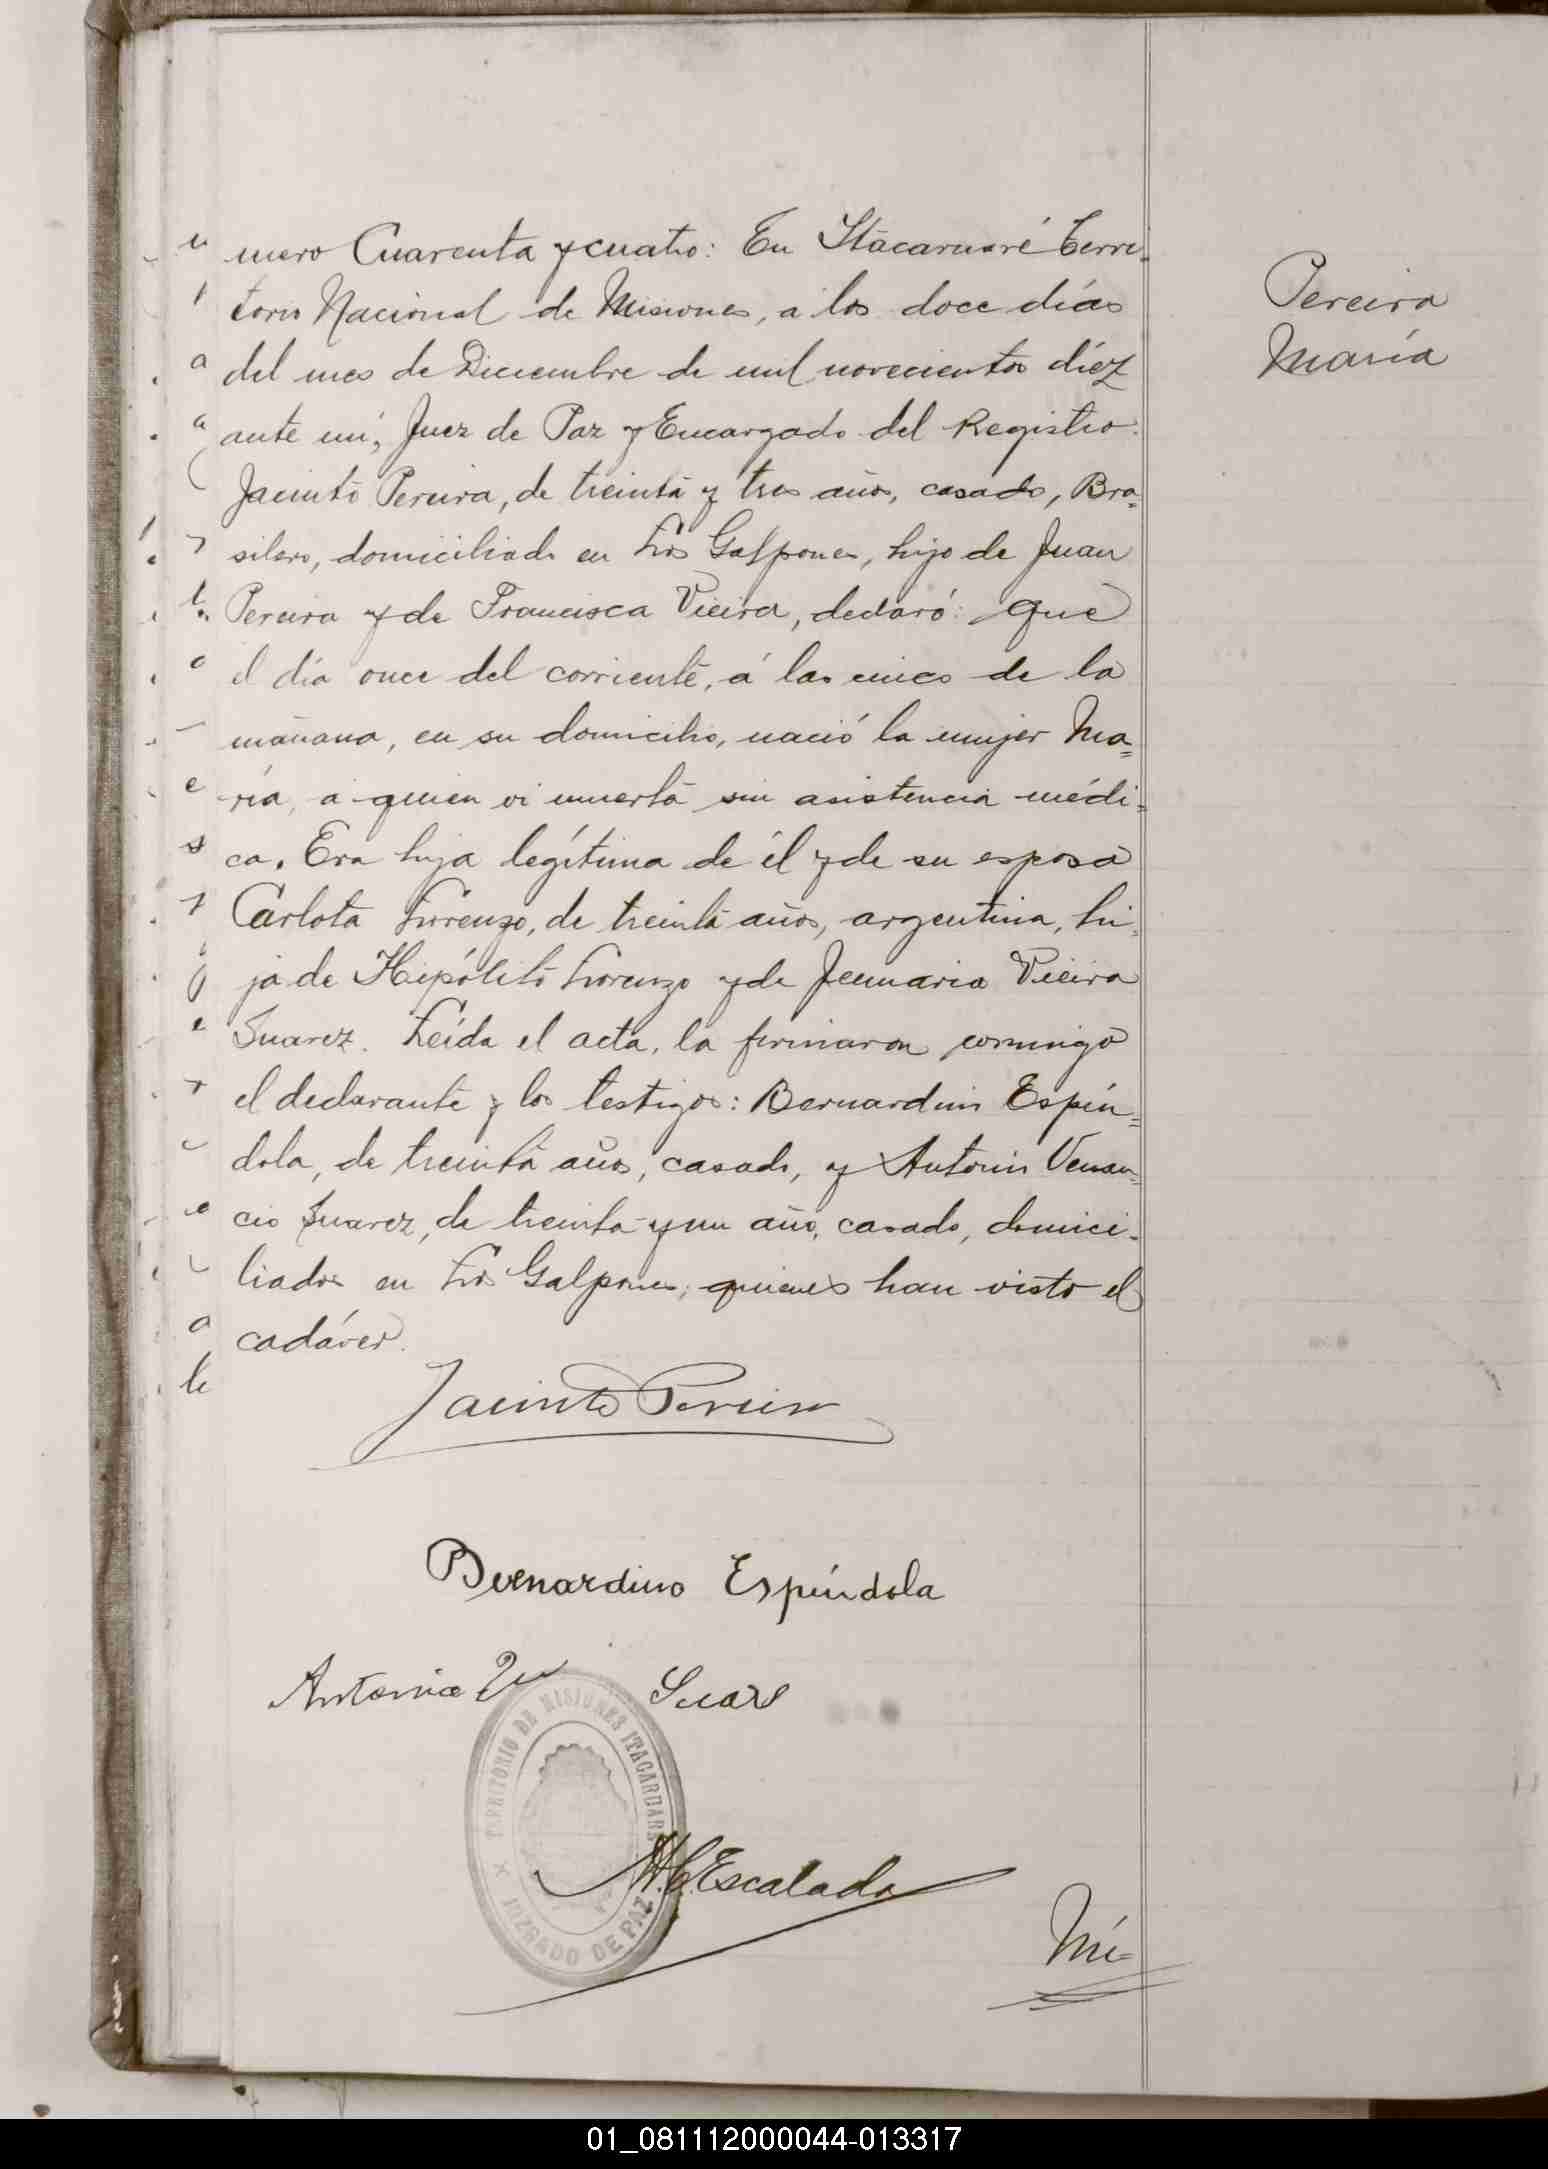 mero Cuarenta y cuatro: En Itacaruaré Terri-
torio Nacional de Misiones, a los doce días
del mes de Diciembre de mil novecientos diez
ante mí, Juez de Paz y Encargado del Registro.
Jacinto Pereira, de treinta y tres años, casado, Bra=
silero, domiciliado en Los Galpones, hijo de Juan
Pereira y de Francisca Vieira, declaró: Que
el día once del corriente, á las cinco de la
mañana, en su domicilio, nació la mujer Ma=
ría, a quien vi muerta sin asistencia médi=
ca. Era hija legítima de él y de su esposa
Carlota Lorenzo, de treinta años, argentina, hi-
ja de Hipólito Lorenzo y de Jenuaria Vieira
Suarez. Leída el acta, la firmaron conmigo
el declarante y los testigos: Bernardino Espín=
dola, de treinta años, casado, y Antonio Venan=
cio Suarez, de treinta y un año, casado, domici-
liados en Los Galpones, quienes han visto el
cadáver.
Pereira
María
Jacinto Pereira
Bernardino Espíndola
Antonio Suares
TERRITORIO DE MISIONES ITACARUARE
JUZGADO DE PAZ
Escalada
Nú-
01_081112000044-013317